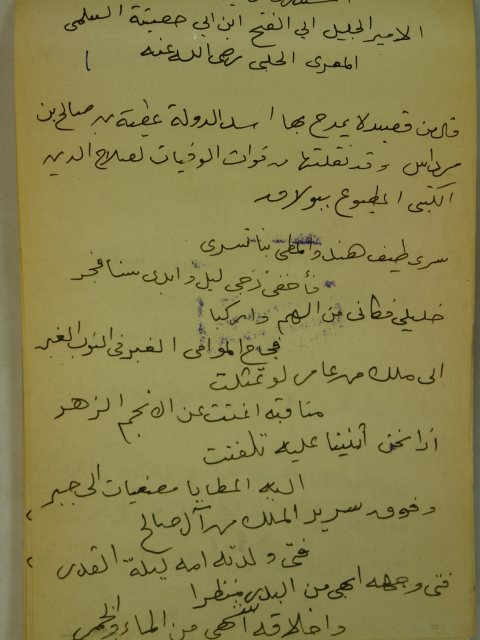 الامير الجليل ابي الفتح ابن ابي حصينة السلمي
المعري الحلبي رضي الله عنه
قال من قصيدة يمدح بها اسد الدولة عطية بن صالح بن
مرداس وقد نقلتها من فوات الوفيات لصلاح الدين
الكتبي المطبوع ببولاق
سرى طيف هند والمطي بنا تسري
فأخفى دجى ليل وابدى سنا فجر
خليلي فكاني من الهم واركبا
فجاج الموامي الغبر في النوب الغبر
الى ملك من عامر لو تمثلت
مناقبه اغنت عن الانجم الزهر
اذا نحن أثنينا عليه تلفتت
اليه المطايا مصغيات الى خبر
وفوق سرير الملك من آل صالح
فتى ولدته امه ليلة القدر
فتى وجهه ابهى من البدر منظرا
واخلاقه اشهى من الماء والخمر